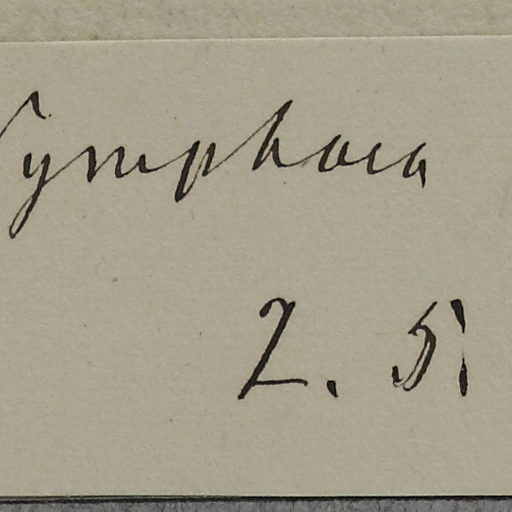 Nymphaea
2. 51